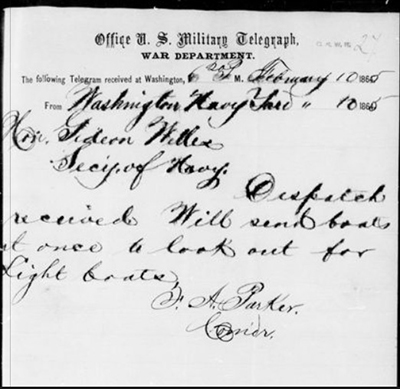 Office U. S. Military Telegraph,
WAR DEPARTMENT.
The following Telegram received at Washington, 6 20 P M. February 10 1865
From Washington Navy Yard " 10 1865
Hon. Gideon Welles
Sec'y. of Navy.
Dispatch
received Will send boats
at once to look out for
Light boats,
F. A. Parker.
Comdr.